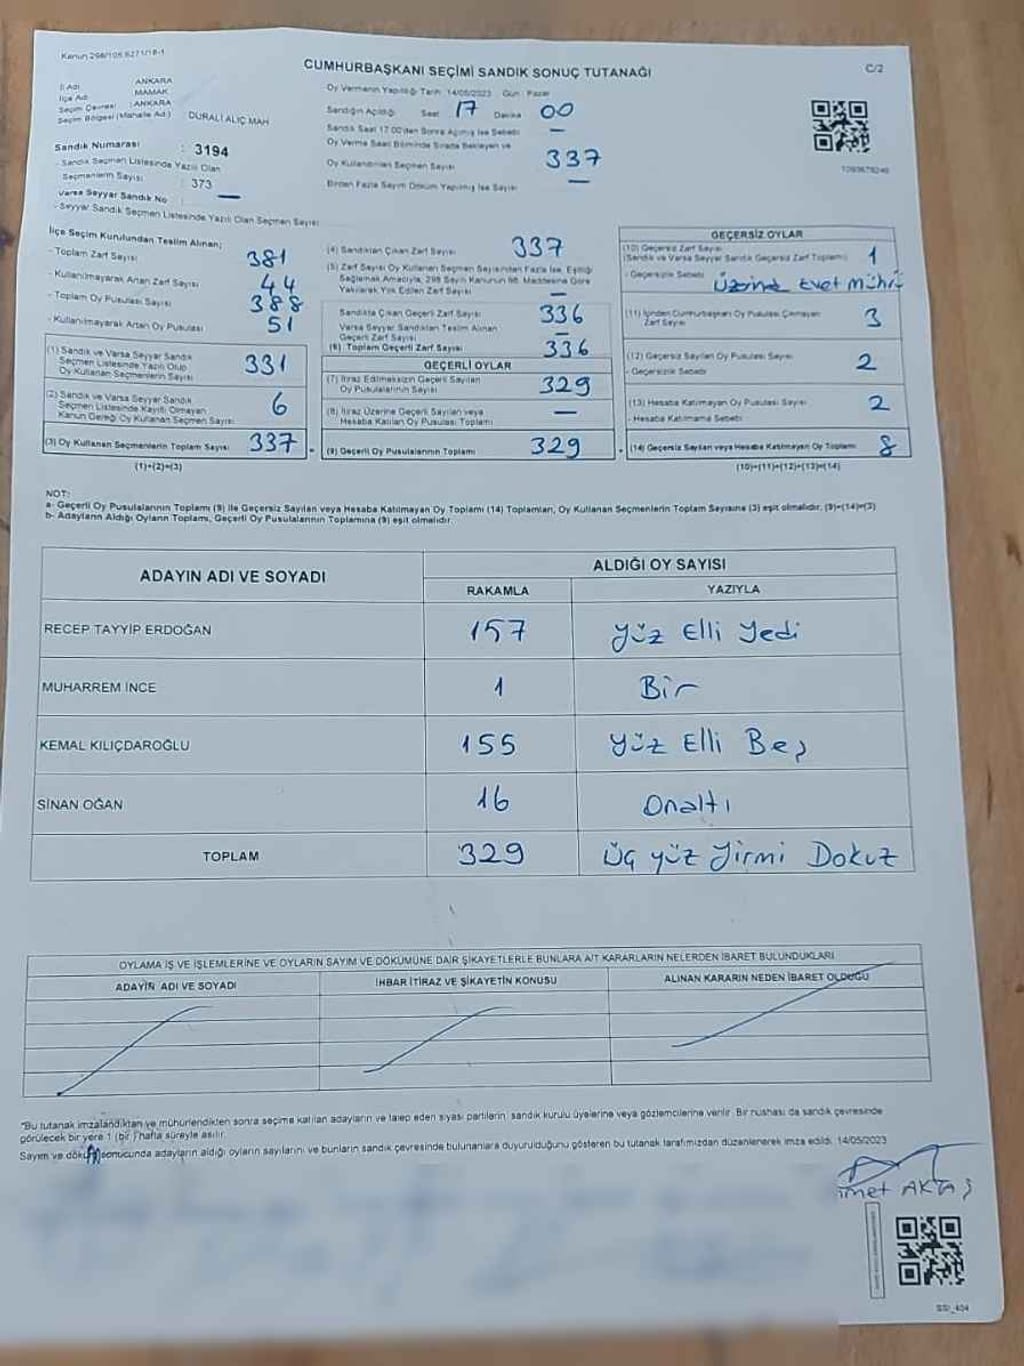 Kanun 298/105 6271/18-1
CUMHURBAŞKANI SEÇİMİ SANDIK SONUÇ TUTANAĞI
C/2
İl Adı ANKARA
İlçe Adı MAMAK
Seçim Çevresi : ANKARA
Seçim Bölgesi (Mahalle Ad.) DURALİ ALIÇ MAH
Sandık Numarası : 3194
- Sandık Seçmen Listesinde Yazılı Olan
Seçmenlerin Sayısı : 373
Varsa Seyyar Sandık No —
- Seyyar Sandık Seçmen Listesinde Yazılı Olan Seçmen Sayısı
Oy Vermenin Yapıldığı Tarih: 14/05/2023 Gün : Pazar
Sandığın Açıldığı Saat 17 Dakika 00
Sandık Saat 17.00'den Sonra Açılmış İse Sebebi —
Oy Verme Saati Bitiminde Sırada Bekleyen ve
Oy Kullandırılan Seçmen Sayısı 337
Birden Fazla Sayım Döküm Yapılmış İse Sayısı —
İlçe Seçim Kurulundan Teslim Alınan;
- Toplam Zarf Sayısı 381
- Kullanılmayarak Artan Zarf Sayısı 44
- Toplam Oy Pusulası Sayısı 388
- Kullanılmayarak Artan Oy Pusulası 51
(1) Sandık ve Varsa Seyyar Sandık
Seçmen Listesinde Yazılı Olup
Oy Kullanan Seçmenlerin Sayısı 331
(2) Sandık ve Varsa Seyyar Sandık
Seçmen Listesinde Kayıtlı Olmayan
Kanun Gereği Oy Kullanan Seçmen Sayısı 6
(3) Oy Kullanan Seçmenlerin Toplam Sayısı 337
(1)+(2)=(3)
(4) Sandıktan Çıkan Zarf Sayısı 337
(5) Zarf Sayısı Oy Kullanan Seçmen Sayısından Fazla İse, Eşitliği
Sağlamak Amacıyla, 298 Sayılı Kanunun 98. Maddesine Göre
Yakılarak Yok Edilen Zarf Sayısı —
Sandıkta Çıkan Geçerli Zarf Sayısı 336
Varsa Seyyar Sandıktan Teslim Alınan
Geçerli Zarf Sayısı —
(6) Toplam Geçerli Zarf Sayısı 336
GEÇERLİ OYLAR
(7) İtiraz Edilmeksizin Geçerli Sayılan
Oy Pusulalarının Sayısı 329
(8) İtiraz Üzerine Geçerli Sayılan veya
Hesaba Katılan Oy Pusulası Toplamı —
(9) Geçerli Oy Pusulalarının Toplamı 329
GEÇERSİZ OYLAR
(10) Geçersiz Zarf Sayısı
(Sandık ve Varsa Seyyar Sandık Geçersiz Zarf Toplamı) 1
- Geçersizlik Sebebi üzerine Evet Mührü
(11) İçinden Cumhurbaşkanı Oy Pusulası Çıkmayan
Zarf Sayısı 3
(12) Geçersiz Sayılan Oy Pusulası Sayısı 2
- Geçersizlik Sebebi
(13) Hesaba Katılmayan Oy Pusulası Sayısı 2
- Hesaba Katılmama Sebebi
(14) Geçersiz Sayılan veya Hesaba Katılmayan Oy Toplamı 8
(10)+(11)+(12)+(13)=(14)
NOT:
a- Geçerli Oy Pusulalarının Toplamı (9) ile Geçersiz Sayılan veya Hesaba Katılmayan Oy Toplamı (14) Toplamları, Oy Kullanan Seçmenlerin Toplam Sayısına (3) eşit olmalıdır. (9)+(14)=(3)
b- Adayların Aldığı Oyların Toplamı, Geçerli Oy Pusulalarının Toplamına (9) eşit olmalıdır.
ADAYIN ADI VE SOYADI ALDIĞI OY SAYISI
RAKAMLA YAZIYLA
RECEP TAYYİP ERDOĞAN 157 yüz Elli yedi
MUHARREM İNCE 1 Bir
KEMAL KILIÇDAROĞLU 155 yüz Elli Beş
SİNAN OĞAN 16 Onaltı
TOPLAM 329 üç yüz yirmi Dokuz
OYLAMA İŞ VE İŞLEMLERİNE VE OYLARIN SAYIM VE DÖKÜMÜNE DAİR ŞİKAYETLERLE BUNLARA AİT KARARLARIN NELERDEN İBARET BULUNDUKLARI
ADAYIN ADI VE SOYADI İHBAR İTİRAZ VE ŞİKAYETİN KONUSU ALINAN KARARIN NEDEN İBARET OLDUĞU
"Bu tutanak imzalandıktan ve mühürlendikten sonra seçime katılan adayların ve talep eden siyasi partilerin, sandık kurulu üyelerine veya gözlemcilerine verilir. Bir nüshası da sandık çevresinde
görülecek bir yere 1 (bir) hafta süreyle asılır.
Sayım ve döküm sonucunda adayların aldığı oyların sayılarını ve bunların sandık çevresinde bulunanlara duyurulduğunu gösteren bu tutanak tarafımızdan düzenlenerek imza edildi. 14/05/2023
AKTAŞ